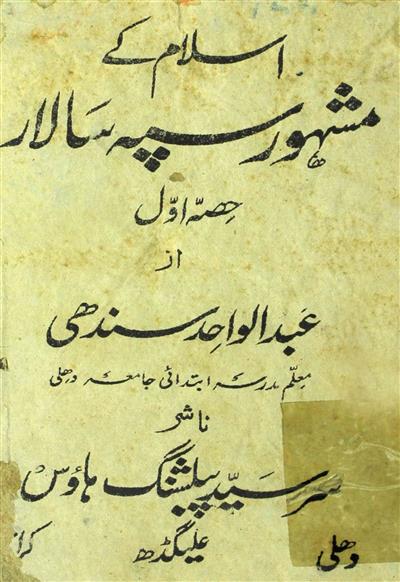 اسلام کے
مشہور سپہ سالار
حصہ اوّل
از
عبد الواحد سندھی
معلّم مدرسہ ابتدائی جامعہ دھلی
ناشر
سرسیّد پبلشنگ ہاؤس
دھلی علیگڈھ